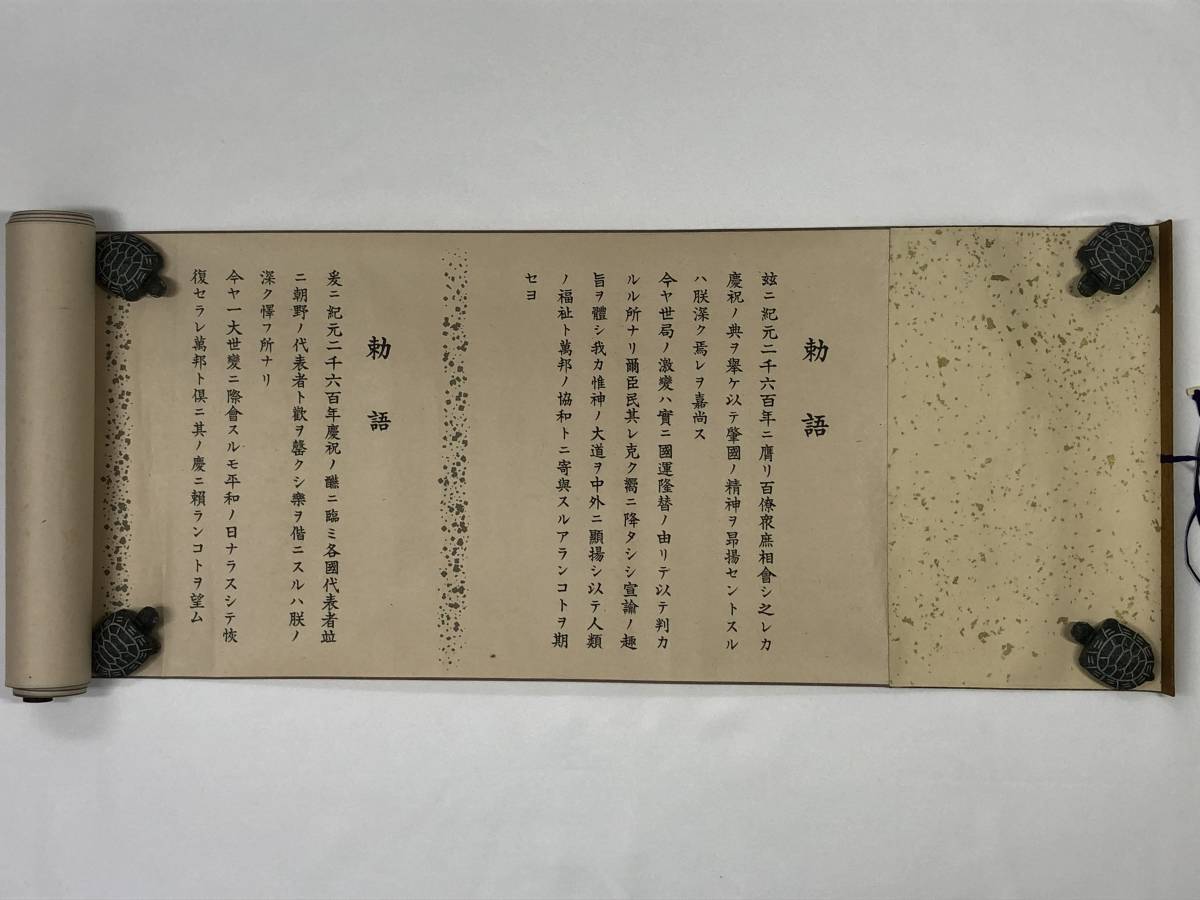 勅語
玆ニ紀元二千六百年ニ膺リ百僚衆庶相會シ之レカ
慶祝ノ典ヲ擧ケ以テ肇國ノ精神ヲ昻揚セントスル
ハ朕深ク焉レヲ嘉尚ス
今ヤ世局ノ激變ハ實ニ國運隆替ノ由リテ以テ判カ
ルル所ナリ爾臣民其レ克ク嚮ニ降タシシ宣諭ノ趣
旨ヲ體シ我カ惟神ノ大道ヲ中外ニ顯揚シ以テ人類
ノ福祉ト萬邦ノ協和トニ寄與スルアランコトヲ期
セヨ
勅語
爰ニ紀元二千六百年慶祝ノ醼ニ臨ミ各國代表者竝
ニ朝野ノ代表者ト歡ヲ罄クシ樂ヲ偕ニスルハ朕ノ
深ク懌フ所ナリ
今ヤ一大世變ニ際會スルモ平和ノ日ナラスシテ恢
復セラレ萬邦ト倶ニ其ノ慶ニ賴ランコトヲ望ム